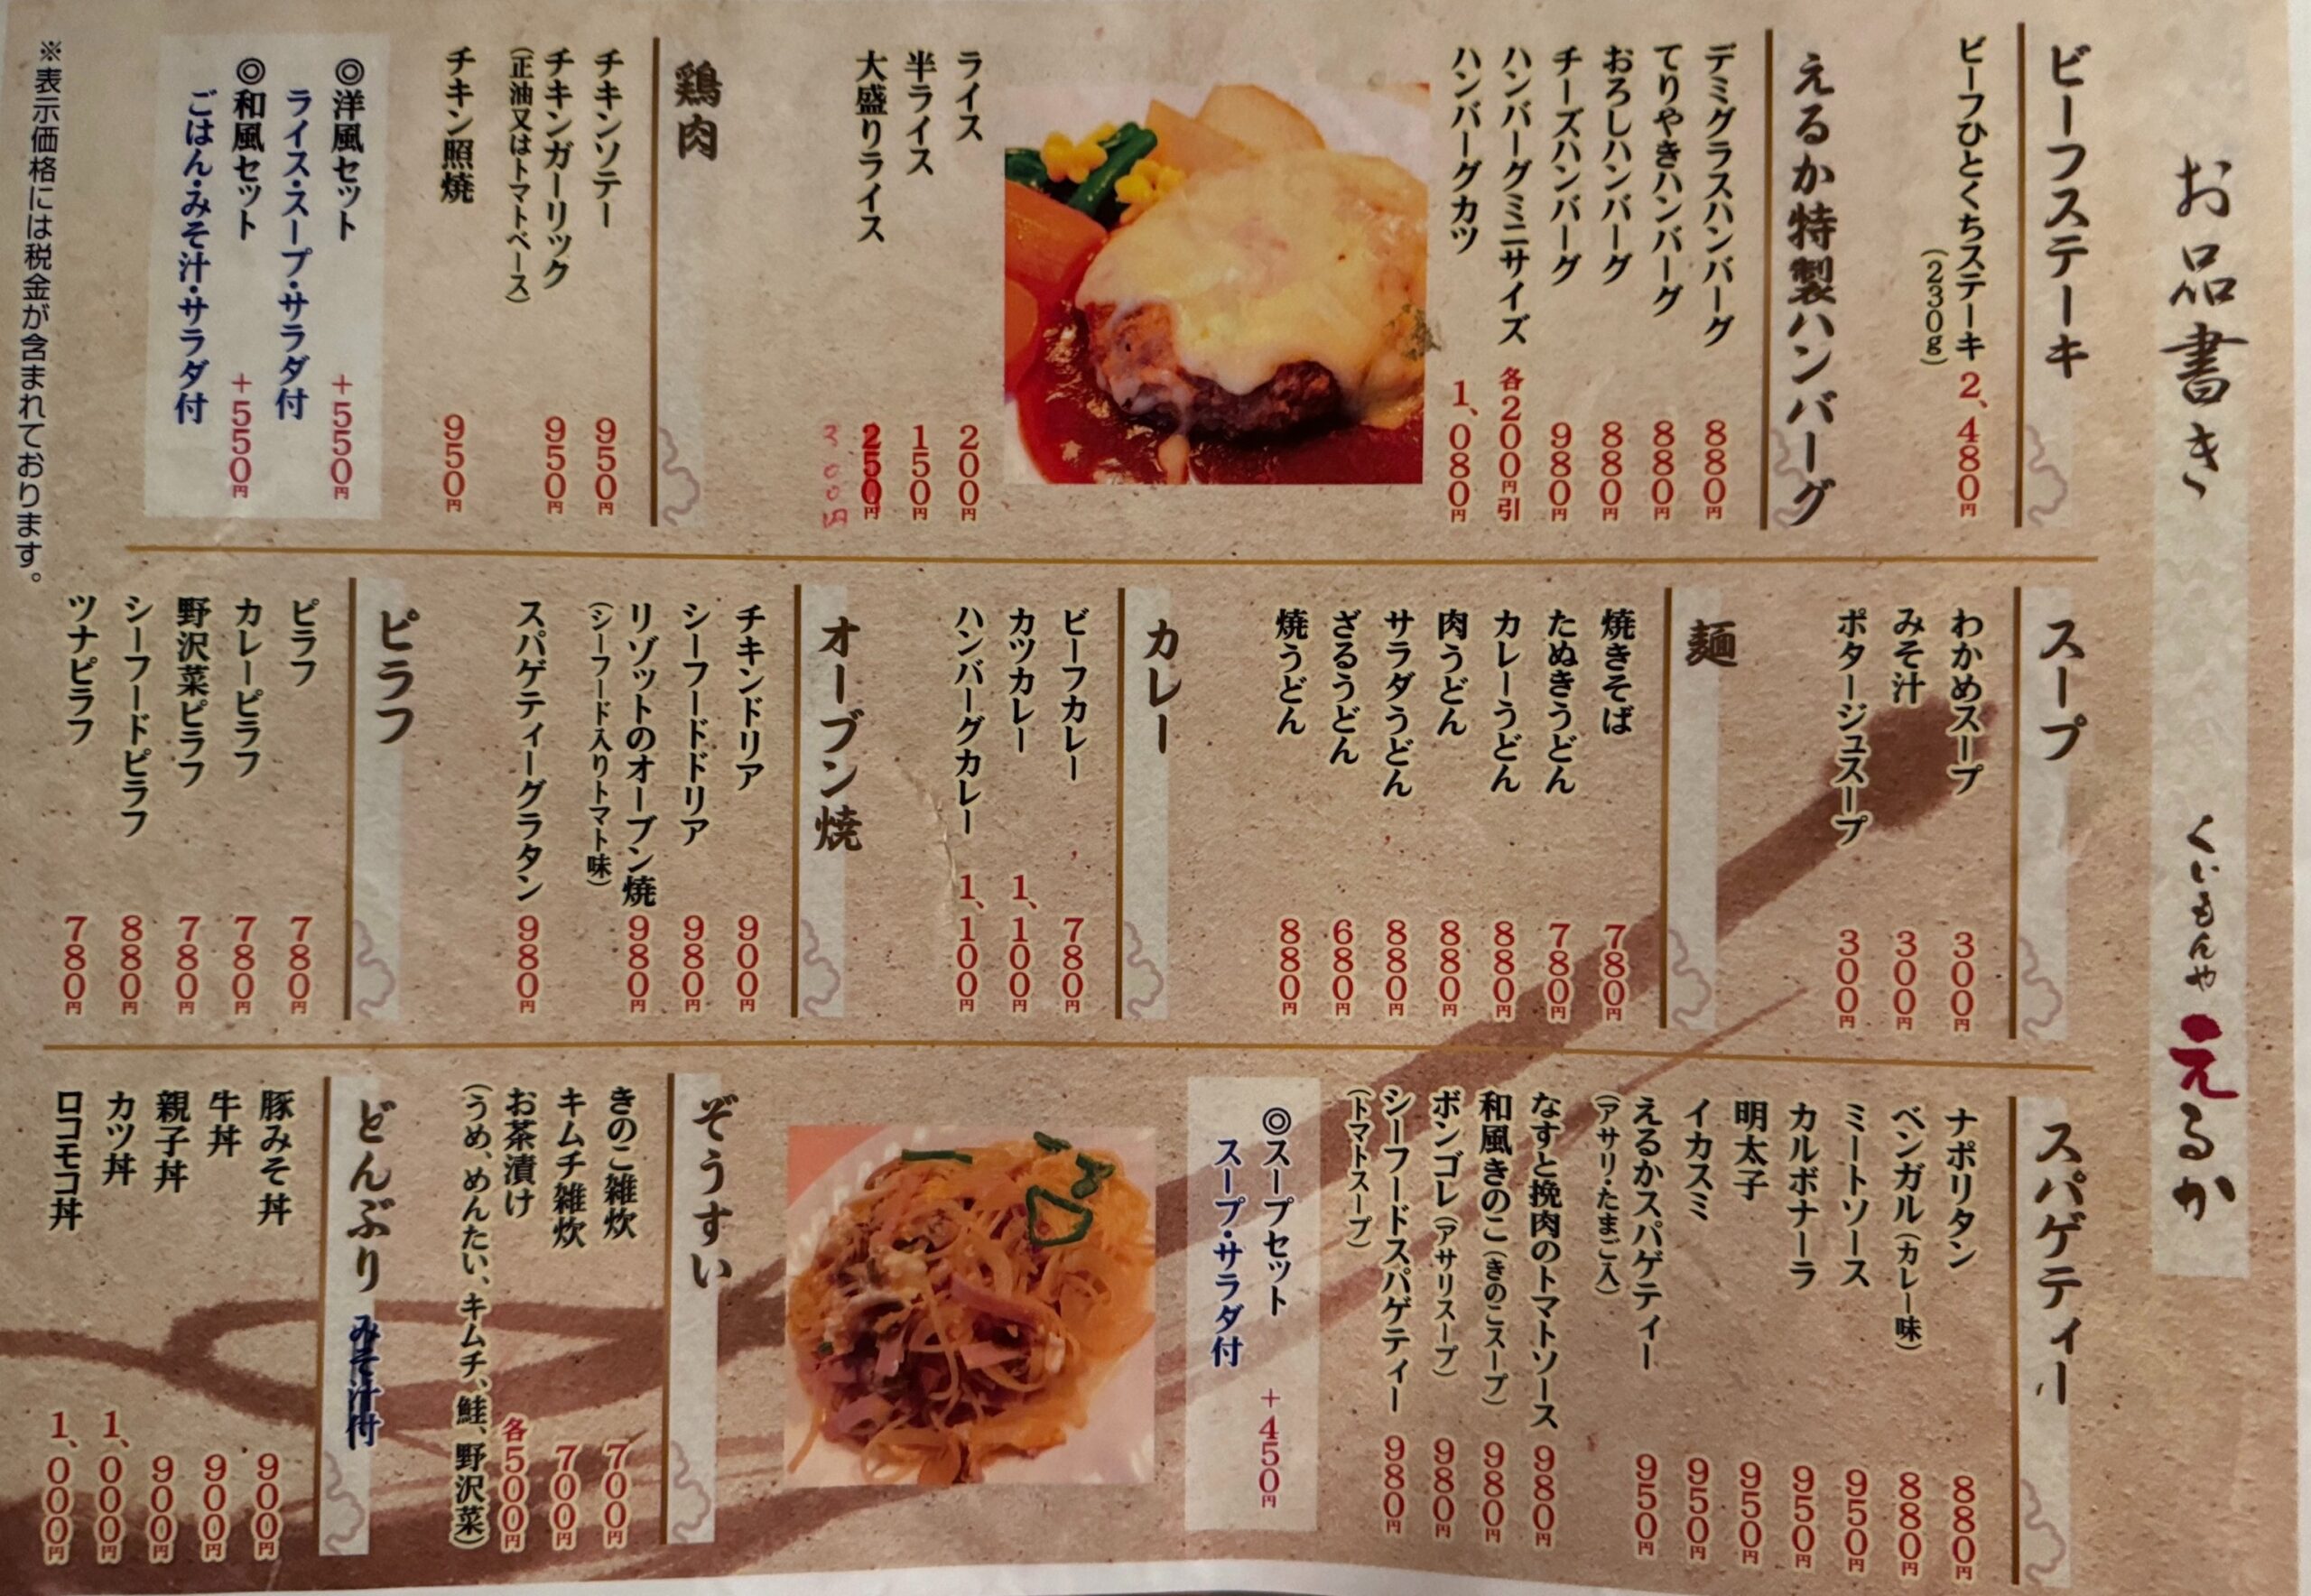 お品書き
くいもんや えるか
ビーフステーキ
ビーフひとくちステーキ 2、480円
(230g)
えるか特製ハンバーグ
デミグラスハンバーグ 880円
てりやきハンバーグ 880円
おろしハンバーグ 880円
チーズハンバーグ 980円
ハンバーグミニサイズ 各200円引
ハンバーグカツ 1、080円
ライス 200円
半ライス 150円
大盛りライス 250円
300円
鶏肉
チキンソテー 950円
チキンガーリック 950円
(正油又はトマトベース)
チキン照焼 950円
◎洋風セット +550円
ライス・スープ・サラダ付
◎和風セット +550円
ごはん・みそ汁・サラダ付
※表示価格には税金が含まれております。
スープ
わかめスープ 300円
みそ汁 300円
ポタージュスープ 300円
麺
焼きそば 780円
たぬきうどん 780円
カレーうどん 880円
肉うどん 880円
サラダうどん 880円
ざるうどん 680円
焼うどん 880円
カレー
ビーフカレー 780円
カツカレー 1、100円
ハンバーグカレー 1、100円
オーブン焼
チキンドリア 900円
シーフードドリア 980円
リゾットのオーブン焼 980円
(シーフード入りトマト味)
スパゲティーグラタン 980円
ピラフ
ピラフ 780円
カレーピラフ 780円
野沢菜ピラフ 780円
シーフードピラフ 880円
ツナピラフ 780円
スパゲティー
ナポリタン 880円
ベンガル(カレー味) 880円
ミートソース 950円
カルボナーラ 950円
明太子 950円
イカスミ 950円
えるかスパゲティー 950円
(アサリ・たまご入)
なすと挽肉のトマトソース 980円
和風きのこ(きのこスープ) 980円
ボンゴレ(アサリスープ) 980円
シーフードスパゲティー 980円
(トマトスープ)
◎スープセット +450円
スープ・サラダ付
ぞうすい
きのこ雑炊 700円
キムチ雑炊 700円
お茶漬け 各500円
(うめ、めんたい、キムチ、鮭、野沢菜)
どんぶり みそ汁付
豚みそ丼 900円
牛丼 900円
親子丼 900円
カツ丼 1、000円
ロコモコ丼 1、000円